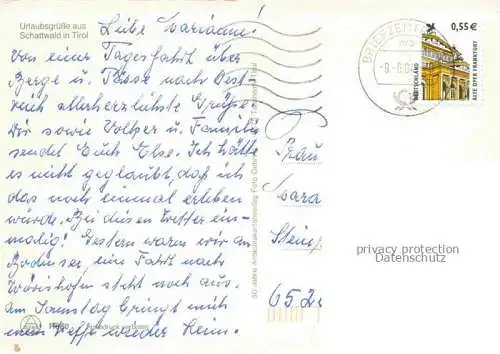 Urlaubsgrüße aus
Schattwald in Tirol
Liebe Marianne!
Von einer Tagesfahrt über
Berge u. Pässe nach Öst-
reich allerherzlichste Grüße
Dir sowie Volker u. Familie
sendet Euch Else. Ich hätte
es nicht geglaubt, daß ich
das noch einmal erleben
würde. Bei diesem Wetter ein-
malig! Gestern waren wir am
Bodensee, eine Fahrt nach
Wörishofen steht noch aus.
Am Samstag bringt mich
mein Neffe wieder heim.
Frau
65.2
BRIEFZENTR
0,55€
DEUTSCHLAND
ALTE OPER FRANKFURT
privacy protection
Datenschutz